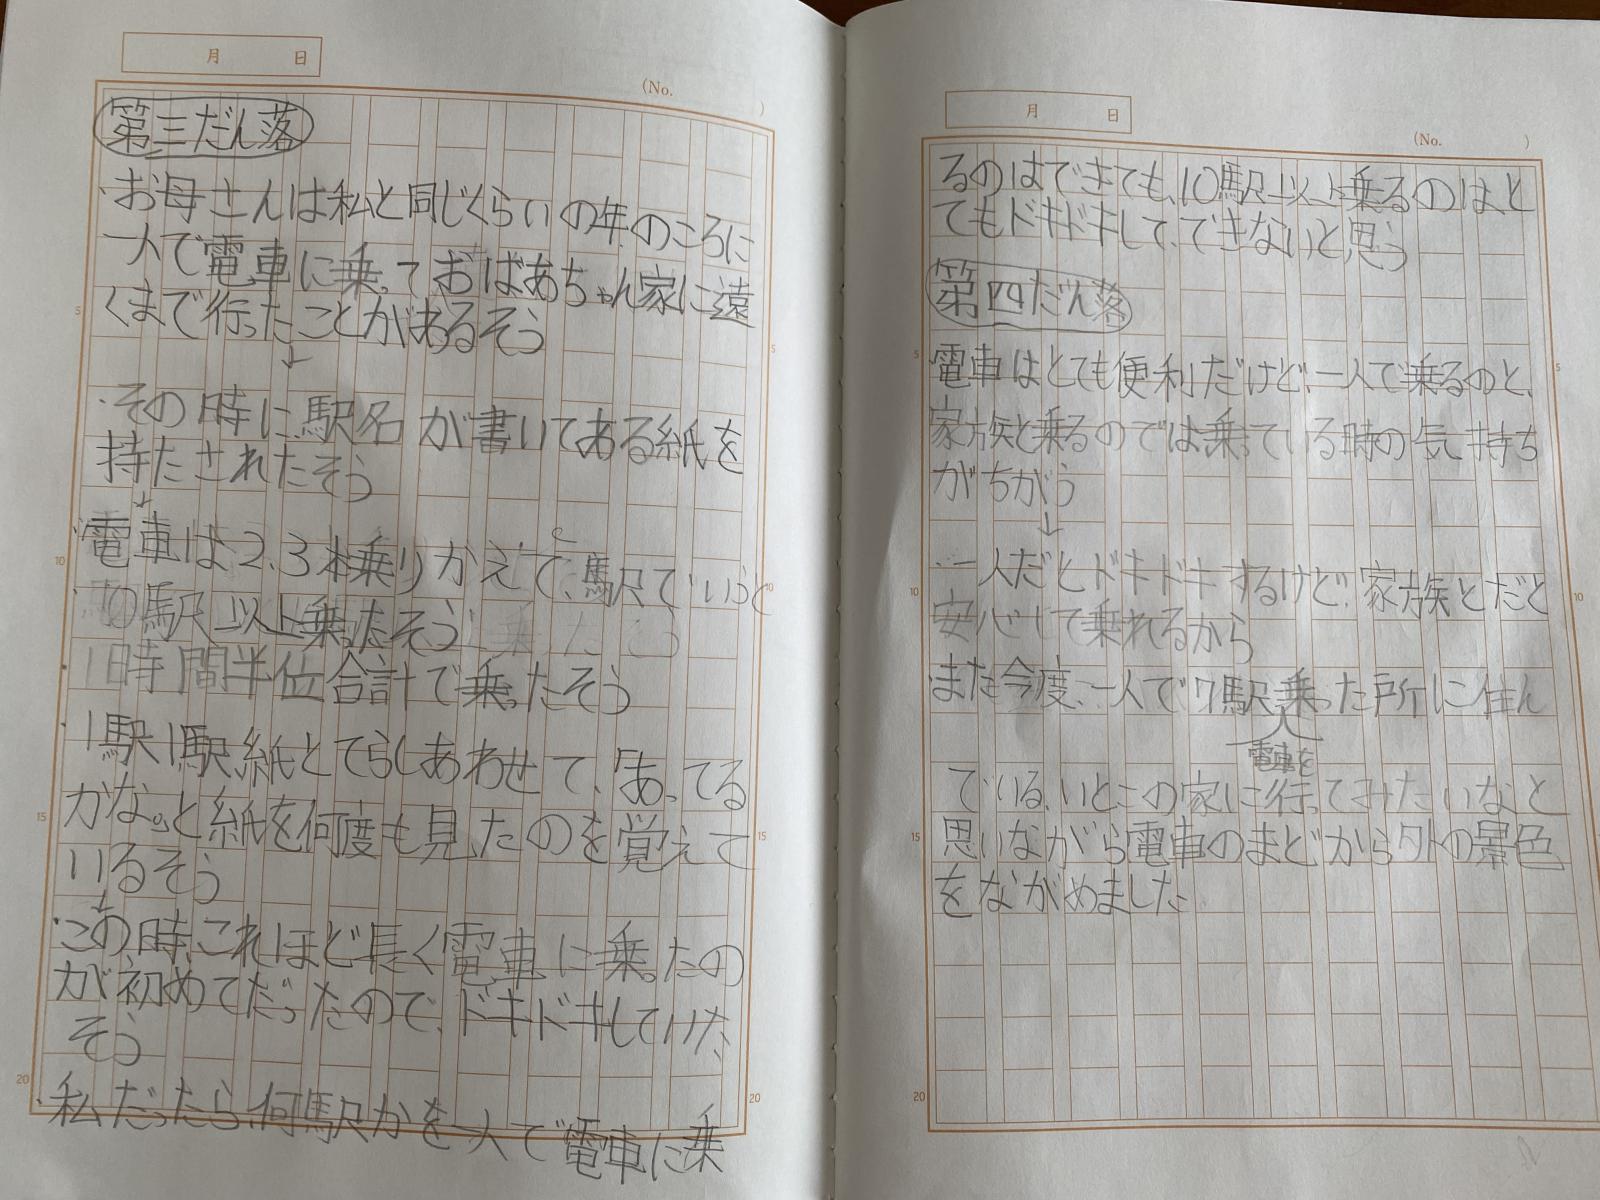 月 日
(No. )
第三だん落
・お母さんは私と同じくらいの年のころに
一人で電車に乗っておばあちゃん家に遠
くまで行ったことがあるそう
↓
・その時に駅名が書いてある紙を
持たされたそう
↓
・電車は2、3本乗りかえて、駅でいうと
10駅以上乗ったそう
1時間半位合計で乗ったそう
・1駅1駅、紙とてらしあわせて、「あってる
かな。」と紙を何度も見たのを覚えて
いるそう
↓
・この時、これほど長く電車に乗ったの
が初めてだったので、ドキドキしていた
そう
・私だったら、何駅かを一人で電車に乗
5
10
15
20
5
10
15
20
月 日
(No. )
るのはできても、10駅以上乗るのはと
てもドキドキして、できないと思う
第四だん落
電車はとても便利だけど、一人で乗るのと、
家族と乗るのでは乗っている時の気持ち
がちがう
↓
・一人だとドキドキするけど、家族とだと
安心して乗れるから
・また今度、一人で7駅乗った所に住ん
電車を
でいる、いとこの家に行ってみたいなと
思いながら電車のまどから外の景色
をながめました
5
10
15
20
5
10
15
20